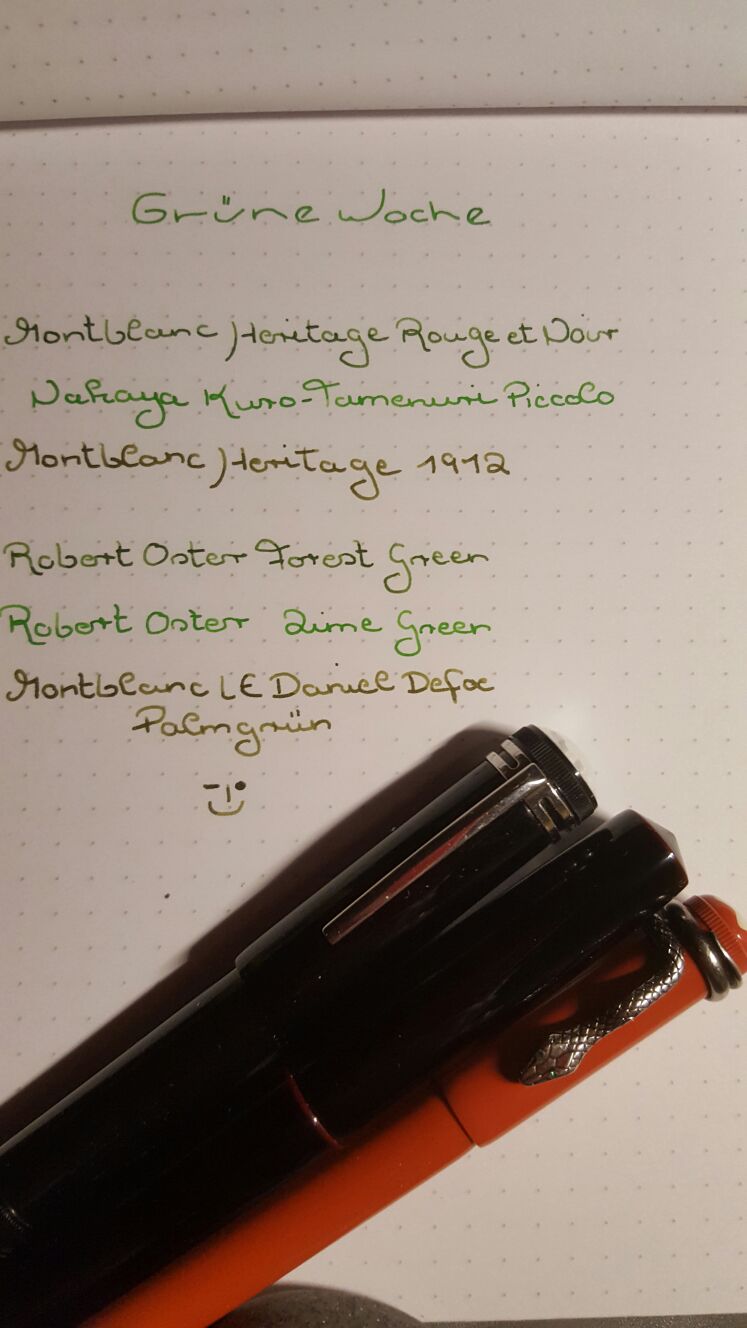 Grüne Woche
Montblanc Heritage Rouge et Noir
Nakaya Kuro-Tamenuri Piccolo
Montblanc Heritage 1912
Robert Oster Forest Green
Robert Oster Lime Green
Montblanc LE Daniel Defoe
Palmgrün